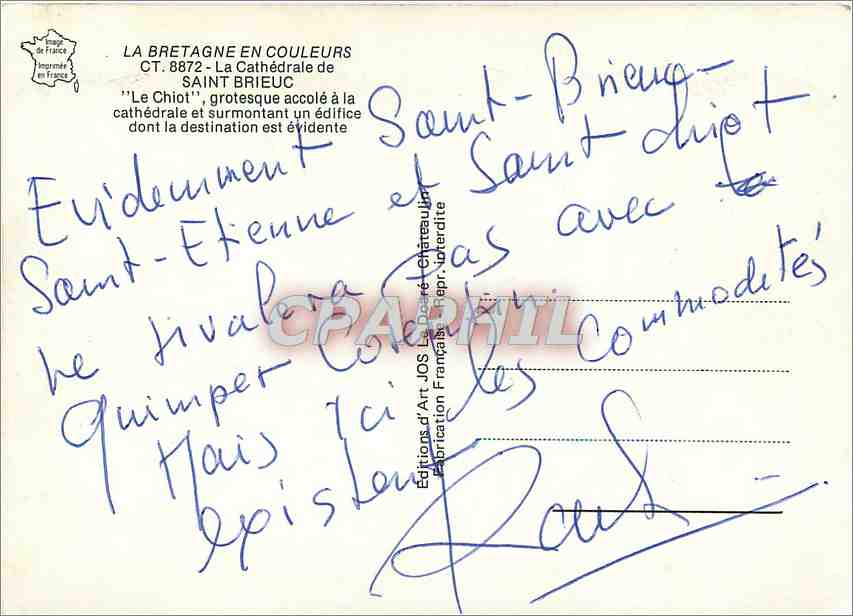 Image
de France
Imprimée
en France
LA BRETAGNE EN COULEURS
CT. 8872 - La Cathédrale de
SAINT BRIEUC
"Le Chiot", grotesque accolé à la
cathédrale et surmontant un édifice
dont la destination est évidente
Evidemment Saint-Brieuc-
Saint-Etienne et Saint chiot
ne rivalera pas avec
Quimper Corentin
Mais ici les commodités
existent
Editions d'Art JOS Le Doaré - Châteaulin
Fabrication Française - Repr. interdite
CPAPHIL